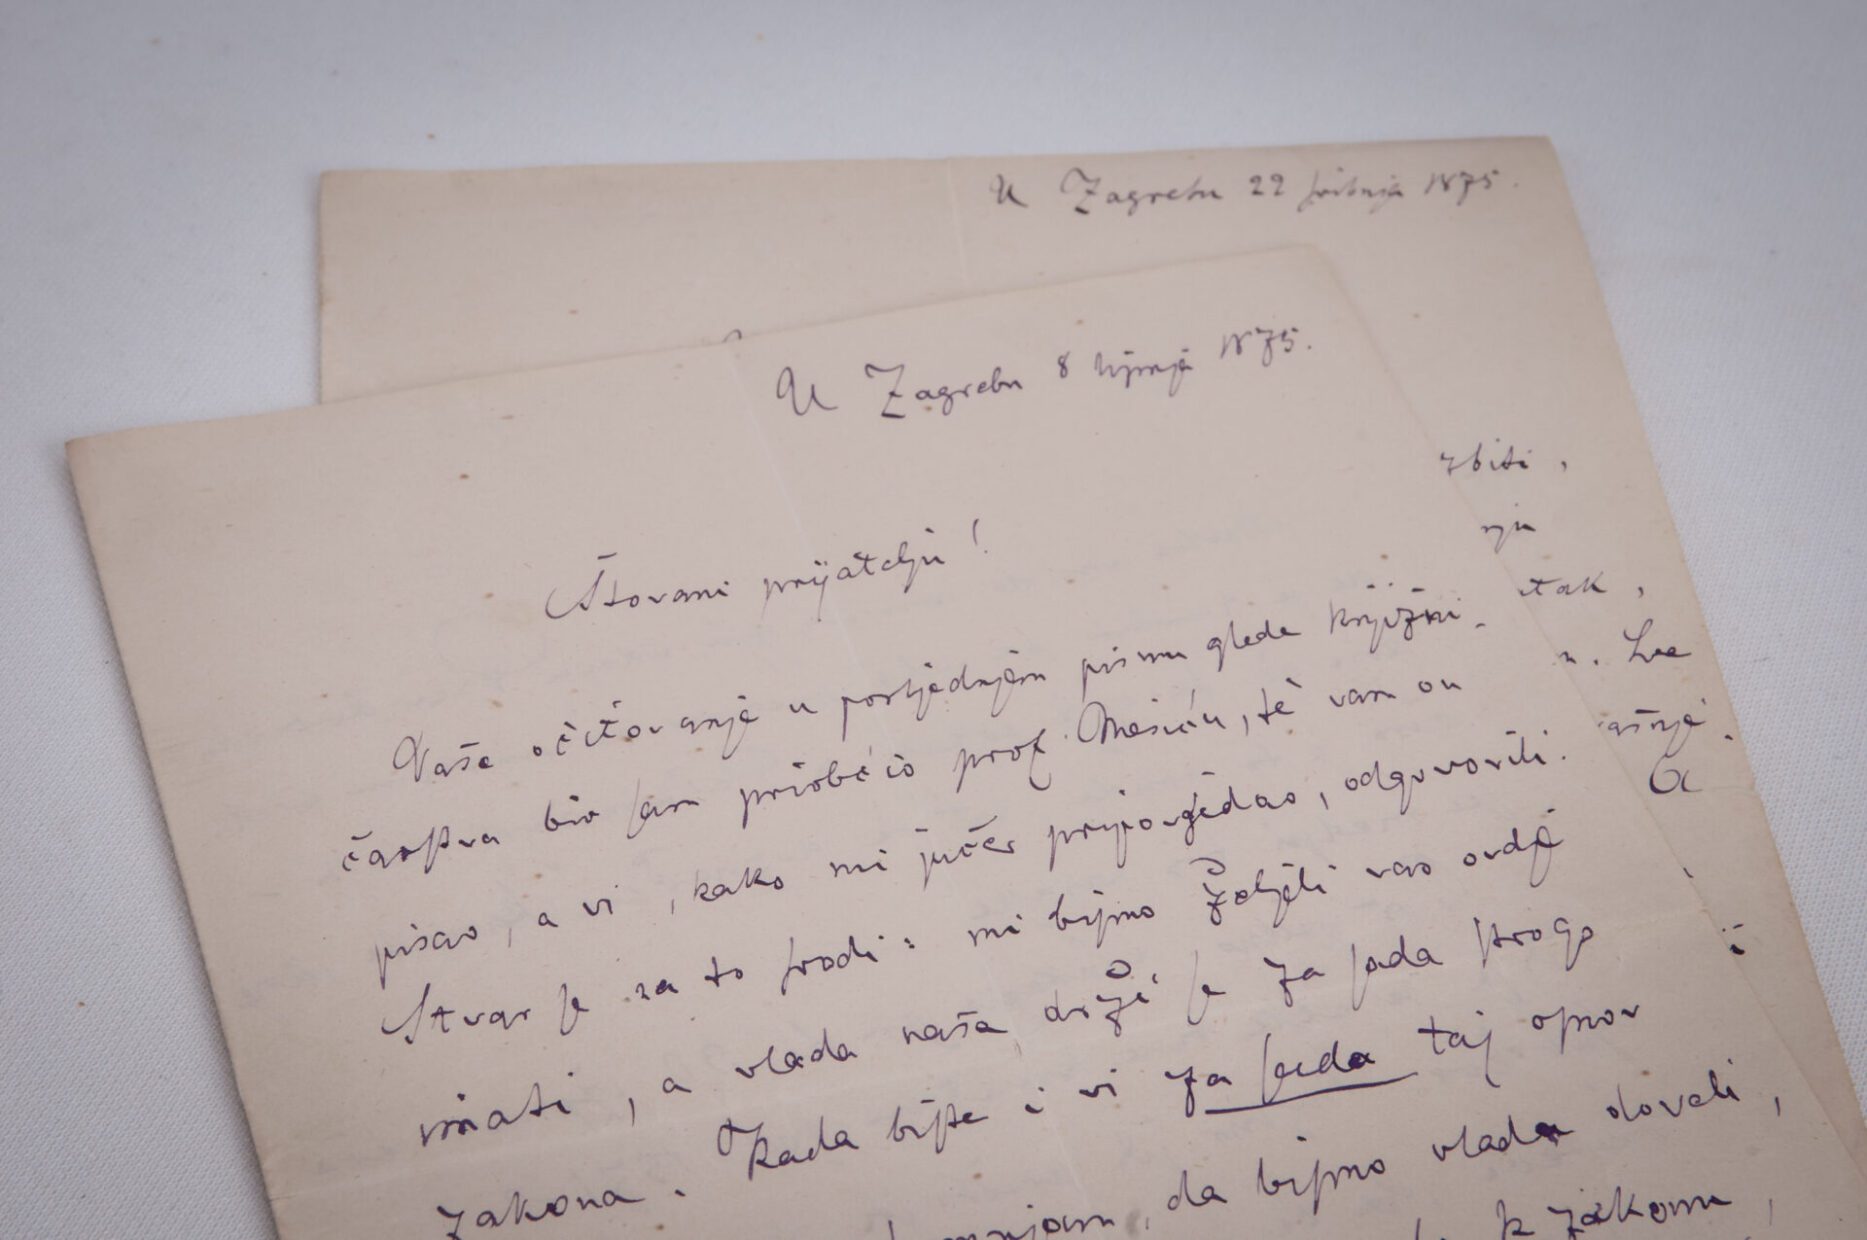 U Zagrebu 22 svibnja 1875.
U Zagrebu 8 lipnja 1875.
Štovani prijatelju!
Vaše očitovanje u posljednjem pismu glede knjižni-
čarstva bio sam priobćio prof. Mesiću, te vam on
pisao, a vi, kako mi jučer pripovjedao, odgovorili.
Stvar je na to svodi: mi bismo željeli vas ovdje
imati, a vlada naša drži se za sada strogo
zakona. Kada biste i vi za sada taj opor
da bismo vladu doveli,
k zakonu,
zbiti,
nju
tak,